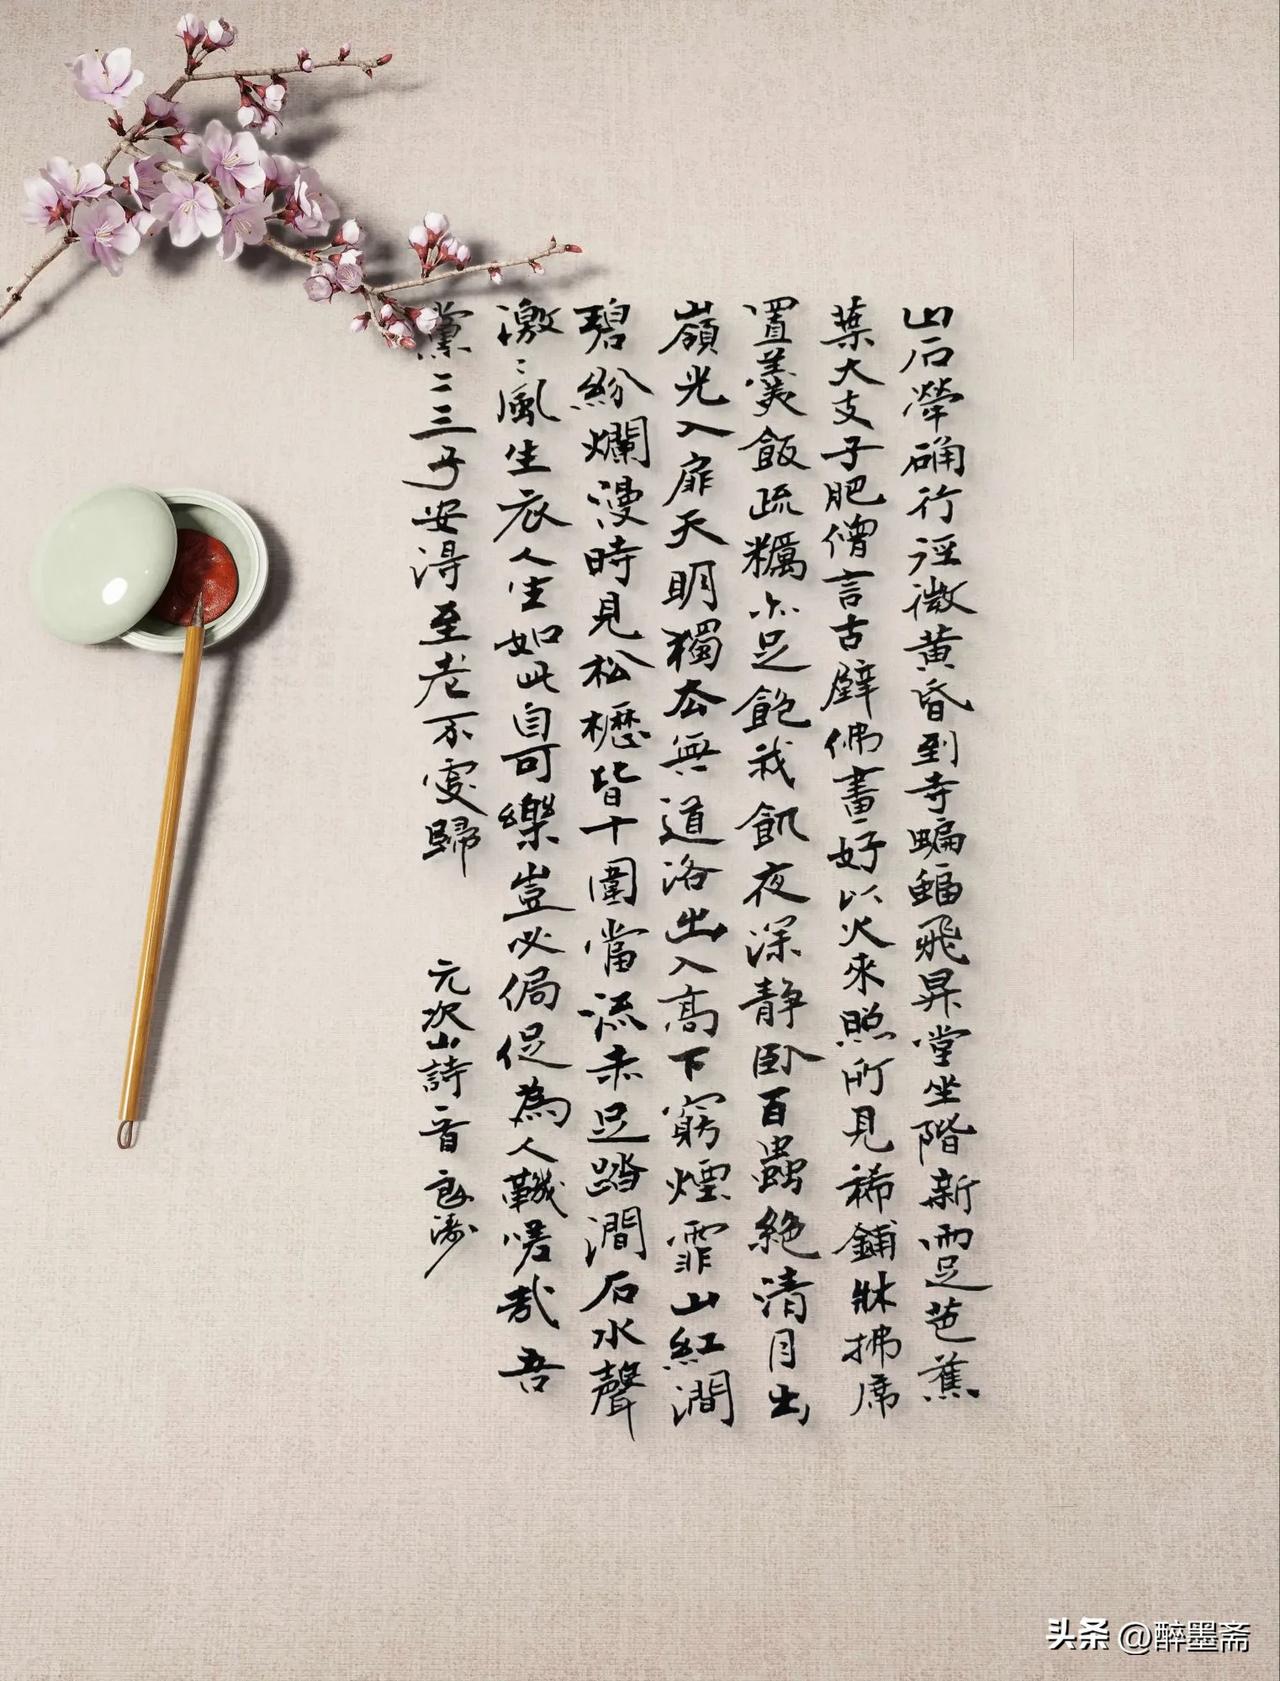 山石犖确行逕微黄昏到寺蝙蝠飛昇堂坐階新雨足芭蕉
葉大支子肥僧言古壁佛畫好以火來照所見稀鋪牀拂席
置羹飯疏糲亦足飽我飢夜深静卧百蟲絶清月出
嶺光入扉天明獨去無道洛出入高下窮煙霏山紅澗
碧紛爛漫時見松櫪皆十圍當流赤足踏澗石水聲
激〻風生衣人生如此自可樂豈必侷促為人鞿嗟哉吾
黨二三子安得至老不更歸
元次山詩一首
头条 @醉墨斋